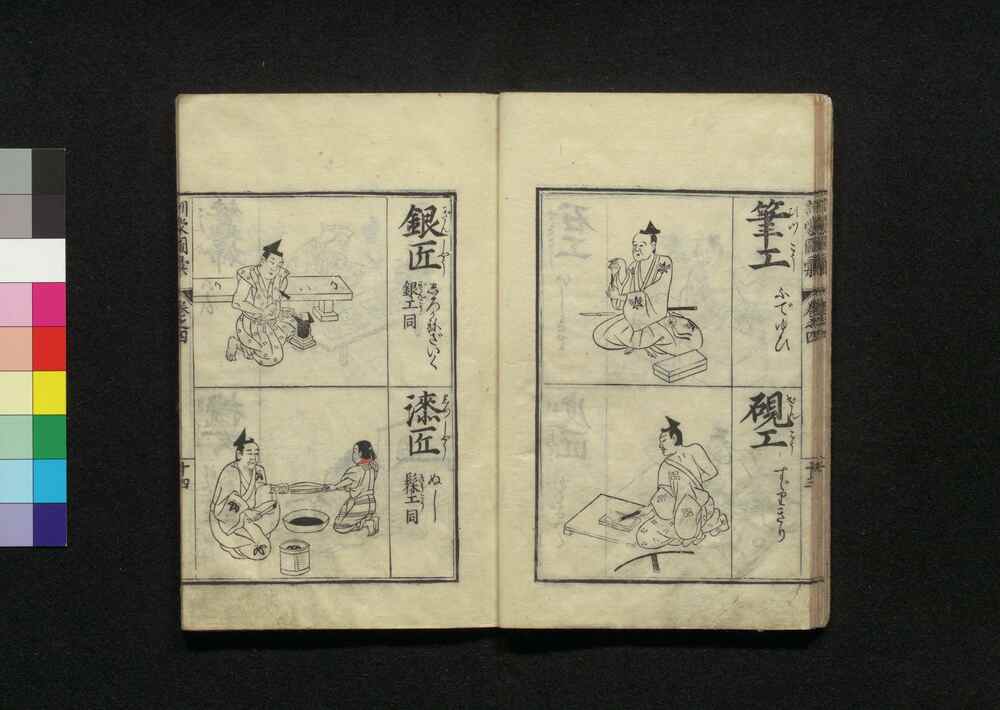 筆工
ひつこう
ふでゆひ
硯工
けんこう
すゞりきり
銀匠
ぎんしやう
しろかねざいく
銀工同
漆匠
しつしやう
ぬし
髹工同
巻之四
十四